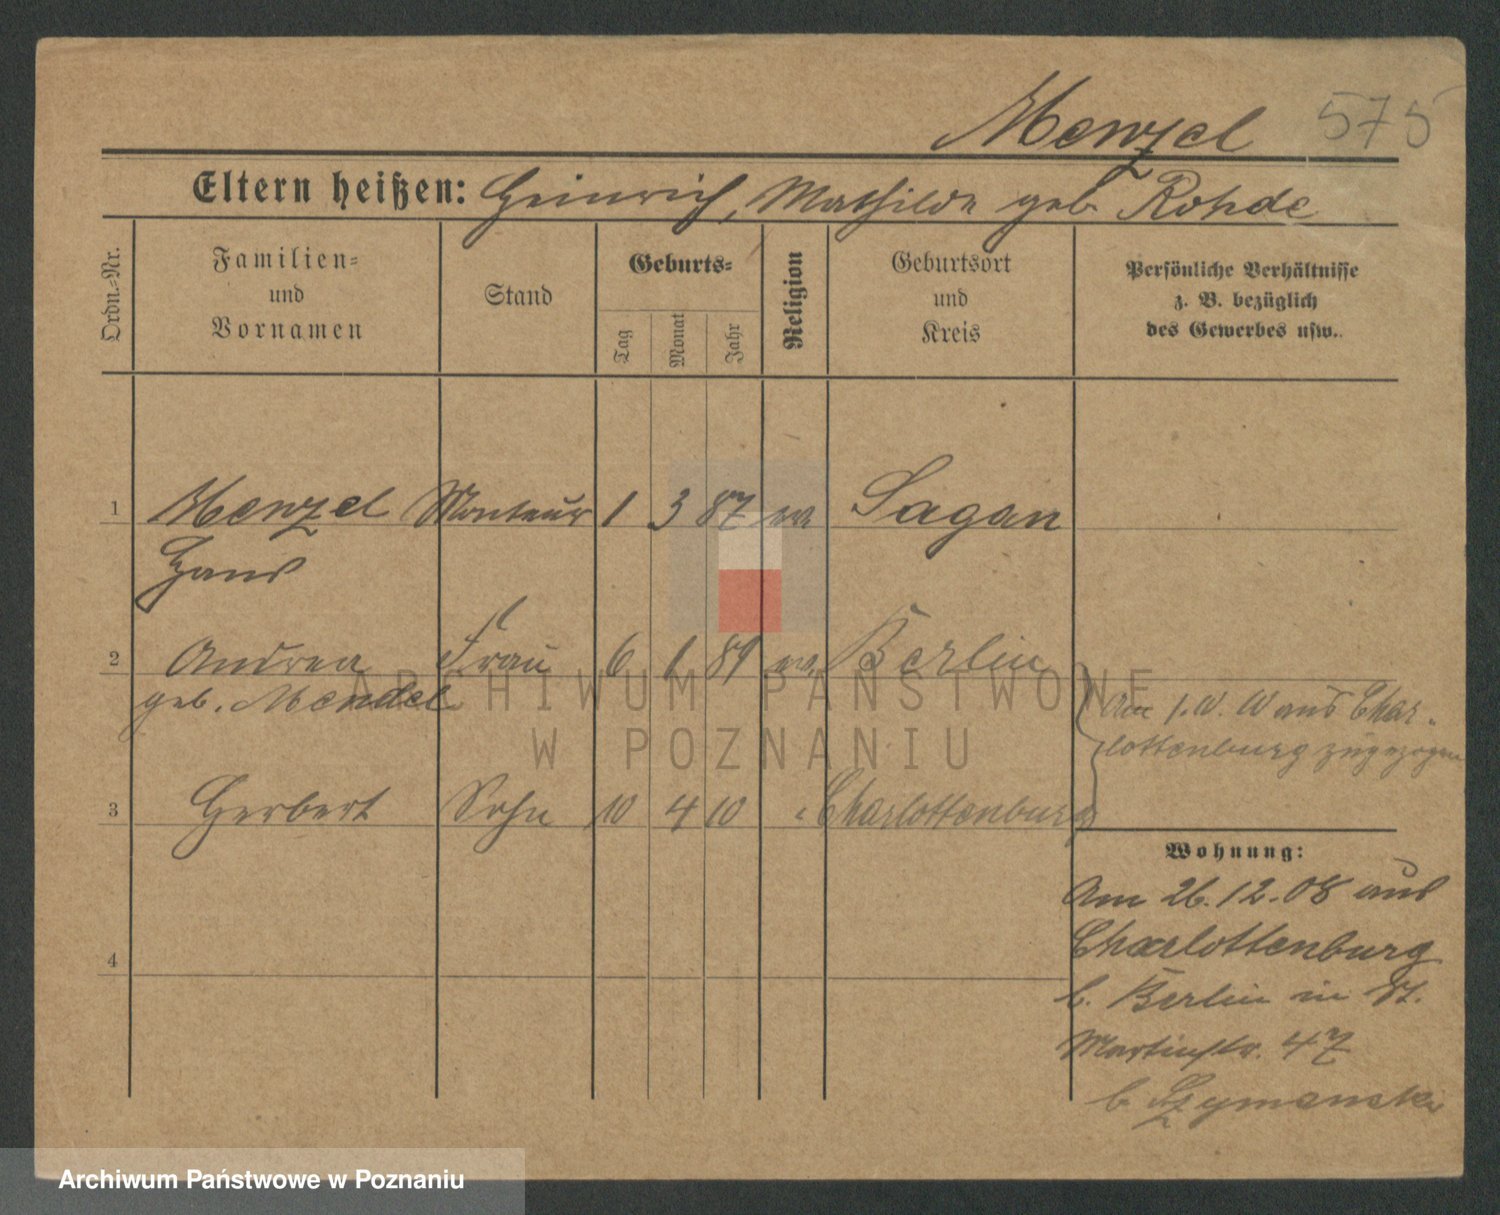 Menzel 575
Eltern heißen: Heinrich, Mathilde geb Rohde
Ordn.-Nr.
Familien-
und
Vornamen
Stand
Geburts-
Tag
Monat
Jahr
Religion
Geburtsort
und
Kreis
Persönliche Verhältnisse
z. B. bezüglich
des Gewerbes usw.
1 Menzel Monteur 1 3 87 ev Sagan
Hans
2 Andrea Frau 6 1 89 ev. Berlin
geb. Mendel
Am 1. IV. W aus Char-
lottenburg zugezogen
3 Herbert Sohn 10 4 10 " Charlottenburg
Wohnung:
Am 26.12.08 aus
Charlottenburg
b. Berlin in St.
Martinstr. 47
b Szymanski
4
ARCHIWUM PAŃSTWOWE
W POZNANIU
Archiwum Państwowe w Poznaniu